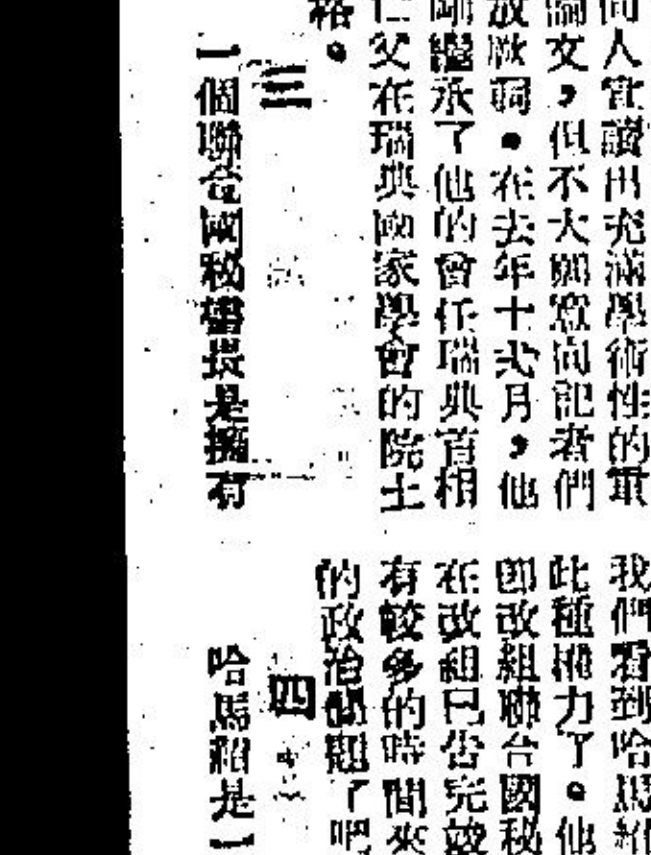 向人宣讀出充滿學術性的
論文，但不大願意向記者們
放厥詞。在去年十弍月，他
剛繼承了他的曾任瑞典首相
亡父在瑞典國家學會的院士
格。
三
一個聯合國秘書長是擁有
我們看到哈馬紹
此種權力了。他
卽改組聯合國秘
在改組已告完竣
有較多的時間來
的政治問題了吧
四
哈馬紹是一